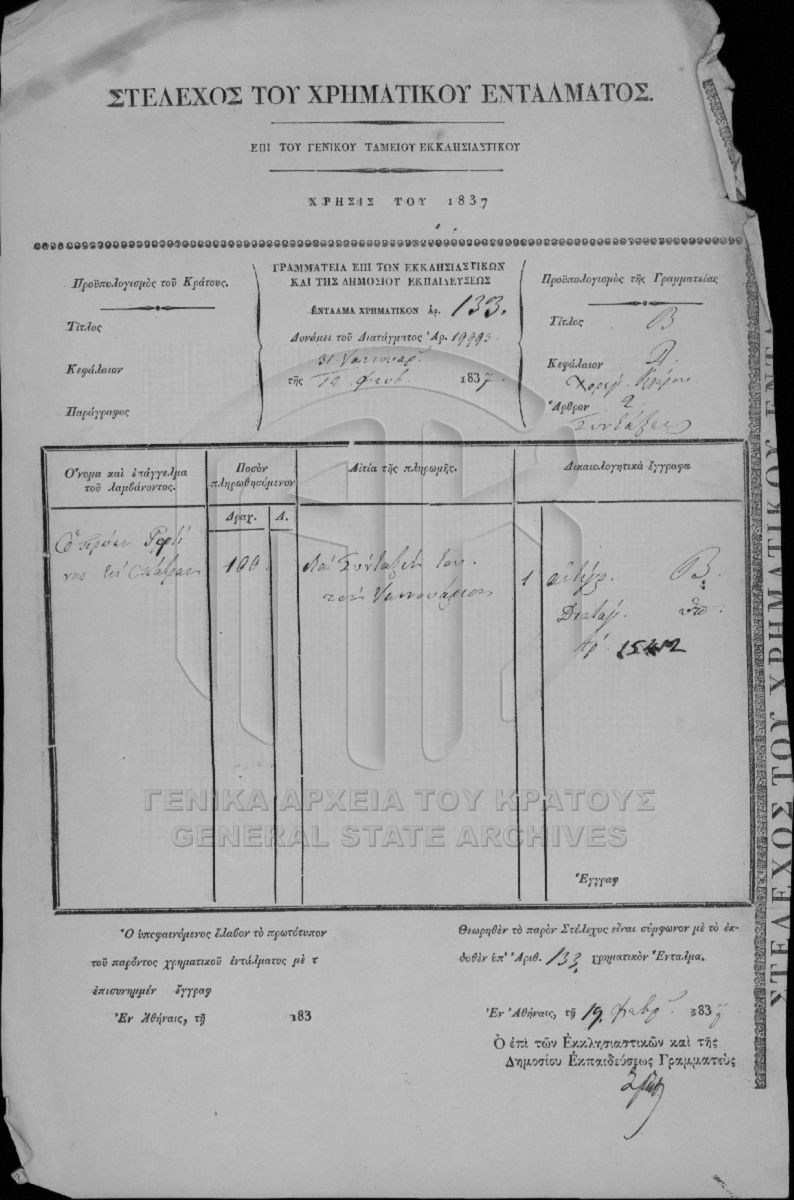 ΣΤΕΛΕΧΟΣ ΤΟΥ ΧΡΗΜΑΤΙΚΟΥ ΕΝΤΑΛΜΑΤΟΣ.
ΕΠΙ ΤΟΥ ΓΕΝΙΚΟΥ ΤΑΜΕΙΟΥ ΕΚΚΛΗΣΙΑΣΤΙΚΟΥ
ΧΡΗΣΙΣ ΤΟΥ 1837
Προϋπολογισμὸς τοῦ Κράτους.
Τίτλος
Κεφάλαιον
Παράγραφος
ΓΡΑΜΜΑΤΕΙΑ ΕΠΙ ΤΩΝ ΕΚΚΛΗΣΙΑΣΤΙΚΩΝ
ΚΑΙ ΤΗΣ ΔΗΜΟΣΙΟΥ ΕΚΠΑΙΔΕΥΣΕΩΣ
ΕΝΤΑΛΜΑ ΧΡΗΜΑΤΙΚΟΝ Ἀρ. 133.
Δυνάμει τοῦ Διατάγματος Ἀρ.
31 Ἰαννουαρ
τῆς 12 Φευβ. 1837.
Προϋπολογισμὸς τῆς Γραμματείας
Τίτλος Β
Κεφάλαιον
Ἄρθρον
Συντάξεις
Ὄνομα καὶ ἐπάγγελμα
τοῦ λαμβάνοντος.
Ποσὸν
πληρωθησόμενον
Δραχ. Λ.
Αἰτία τῆς πληρωμῆς.
Δικαιολογητικὰ ἔγγραφα
Ὁ πρώην
100
διὰ Σύνταξίν του
τοῦ Ἰαννουάριον
1 ἀντίγρ. Β.
Διαταγ. ὑπ
Ἀρ.
ΓΕΝΙΚΑ ΑΡΧΕΙΑ ΤΟΥ ΚΡΑΤΟΥΣ
GENERAL STATE ARCHIVES
Ἔγγραφ
Ὁ ὑπεφαινόμενος ἔλαβον τὸ πρωτότυπον
τοῦ παρόντος χρηματικοῦ ἐντάλματος μὲ τ
ἐπισυνημμέν ἔγγραφ
Ἐν Ἀθήναις, τῇ 183
Θεωρηθὲν τὸ παρὸν Στέλεχος εἶναι σύμφωνον μὲ τὸ ἐκ-
δοθὲν ὑπ' Ἀριθ. 133 χρηματικὸν Ἔνταλμα.
Ἐν Ἀθήναις, τῇ 19 Φεβρ 1837
Ὁ ἐπὶ τῶν Ἐκκλησιαστικῶν καὶ τῆς
Δημοσίου Ἐκπαιδεύσεως Γραμματεὺς
ΣΤΕΛΕΧΟΣ ΤΟΥ ΧΡΗΜΑΤΙΚΟΥ ΕΝΤΑ